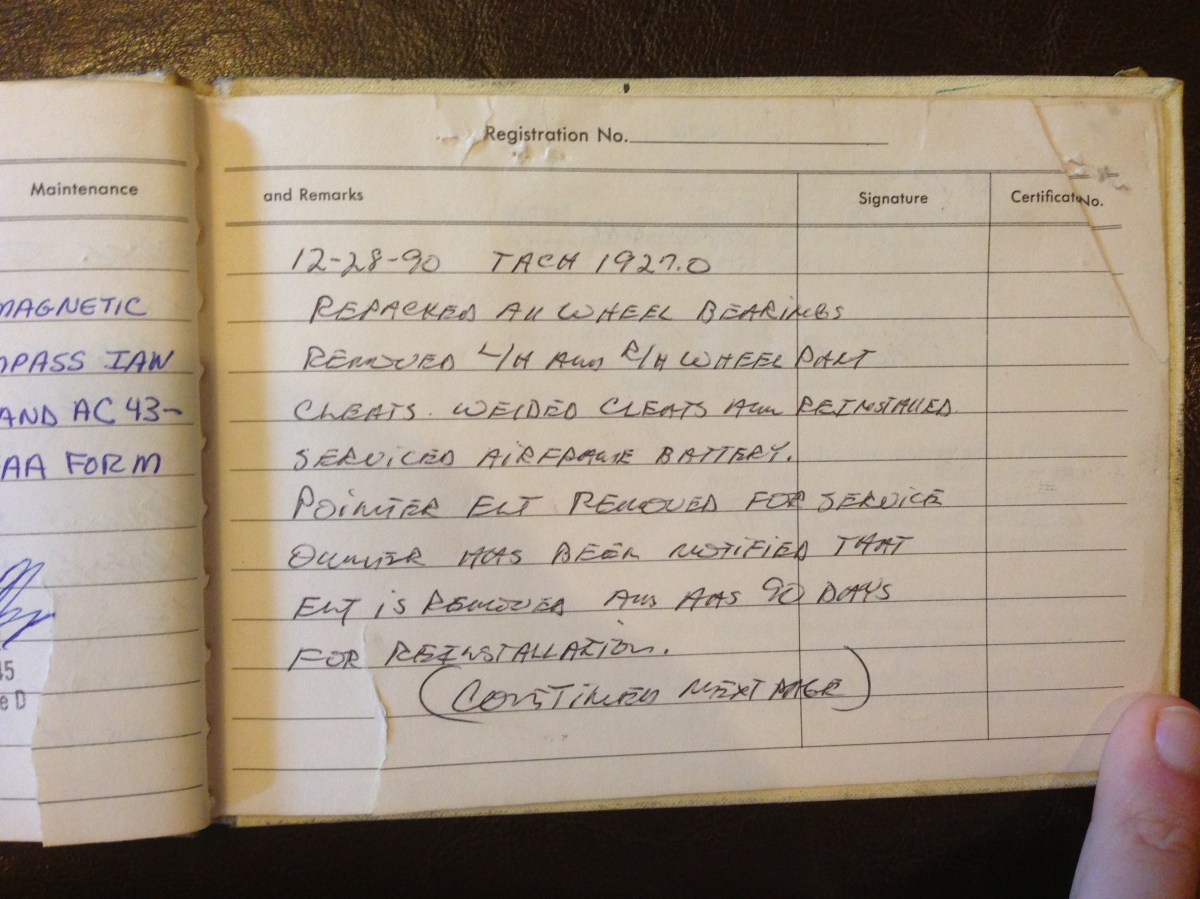 Registration No.
Maintenance
and Remarks
Signature
Certificate No.
MAGNETIC
MPASS IAW
AND AC 43-
AA FORM
45
e D
12-28-90 TACH 1927.0
REPACKED All WHEEL BEARINGS
REMOVED L/H AND R/H WHEEL PANT
CLEATS. WELDED CLEATS AND REINSTALLED
SERVICED AIRFRAME BATTERY.
POINTER ELT REMOVED FOR SERVICE
OWNER HAS BEEN NOTIFIED THAT
ELT iS REMOVED AND HAS 90 DAYS
FOR REINSTALLATION.
(CONTINUED NEXT PAGE)